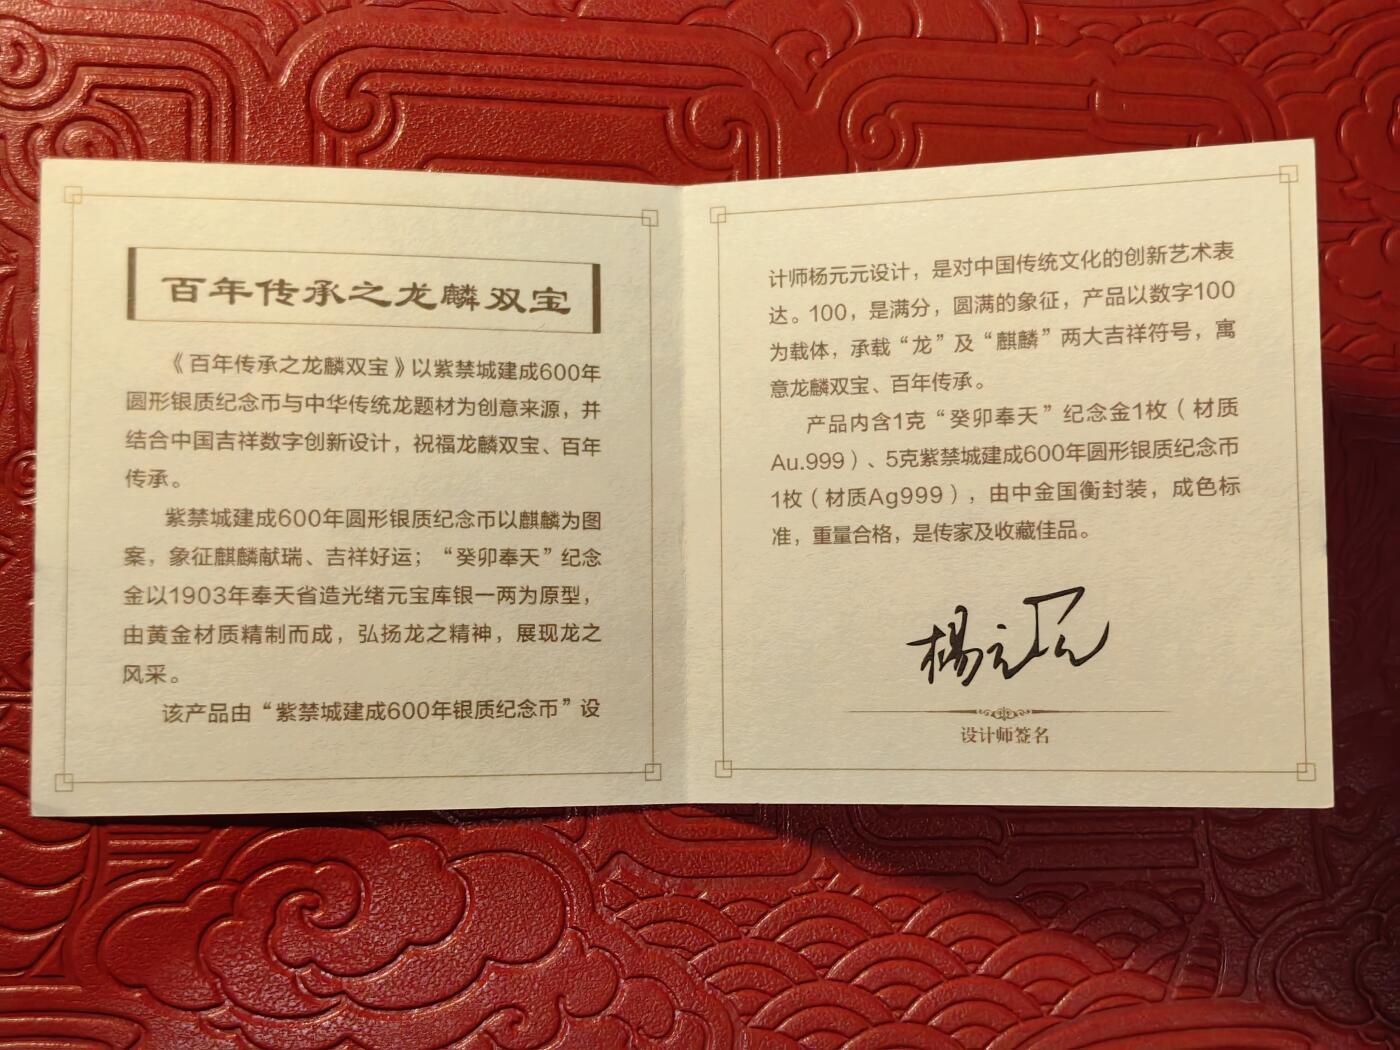 百年传承之龙麟双宝
《百年传承之龙麟双宝》以紫禁城建成600年
圆形银质纪念币与中华传统龙题材为创意来源，并
结合中国吉祥数字创新设计，祝福龙麟双宝、百年
传承。
紫禁城建成600年圆形银质纪念币以麒麟为图
案，象征麒麟献瑞、吉祥好运；“癸卯奉天”纪念
金以1903年奉天省造光绪元宝库银一两为原型，
由黄金材质精制而成，弘扬龙之精神，展现龙之
风采。
该产品由“紫禁城建成600年银质纪念币”设
计师杨元元设计，是对中国传统文化的创新艺术表
达。100，是满分，圆满的象征，产品以数字100
为载体，承载“龙”及“麒麟”两大吉祥符号，寓
意龙麟双宝、百年传承。
产品内含1克“癸卯奉天”纪念金1枚（材质
Au.999）、5克紫禁城建成600年圆形银质纪念币
1枚（材质Ag999），由中金国衡封装，成色标
准，重量合格，是传家及收藏佳品。
楊元元
设计师签名